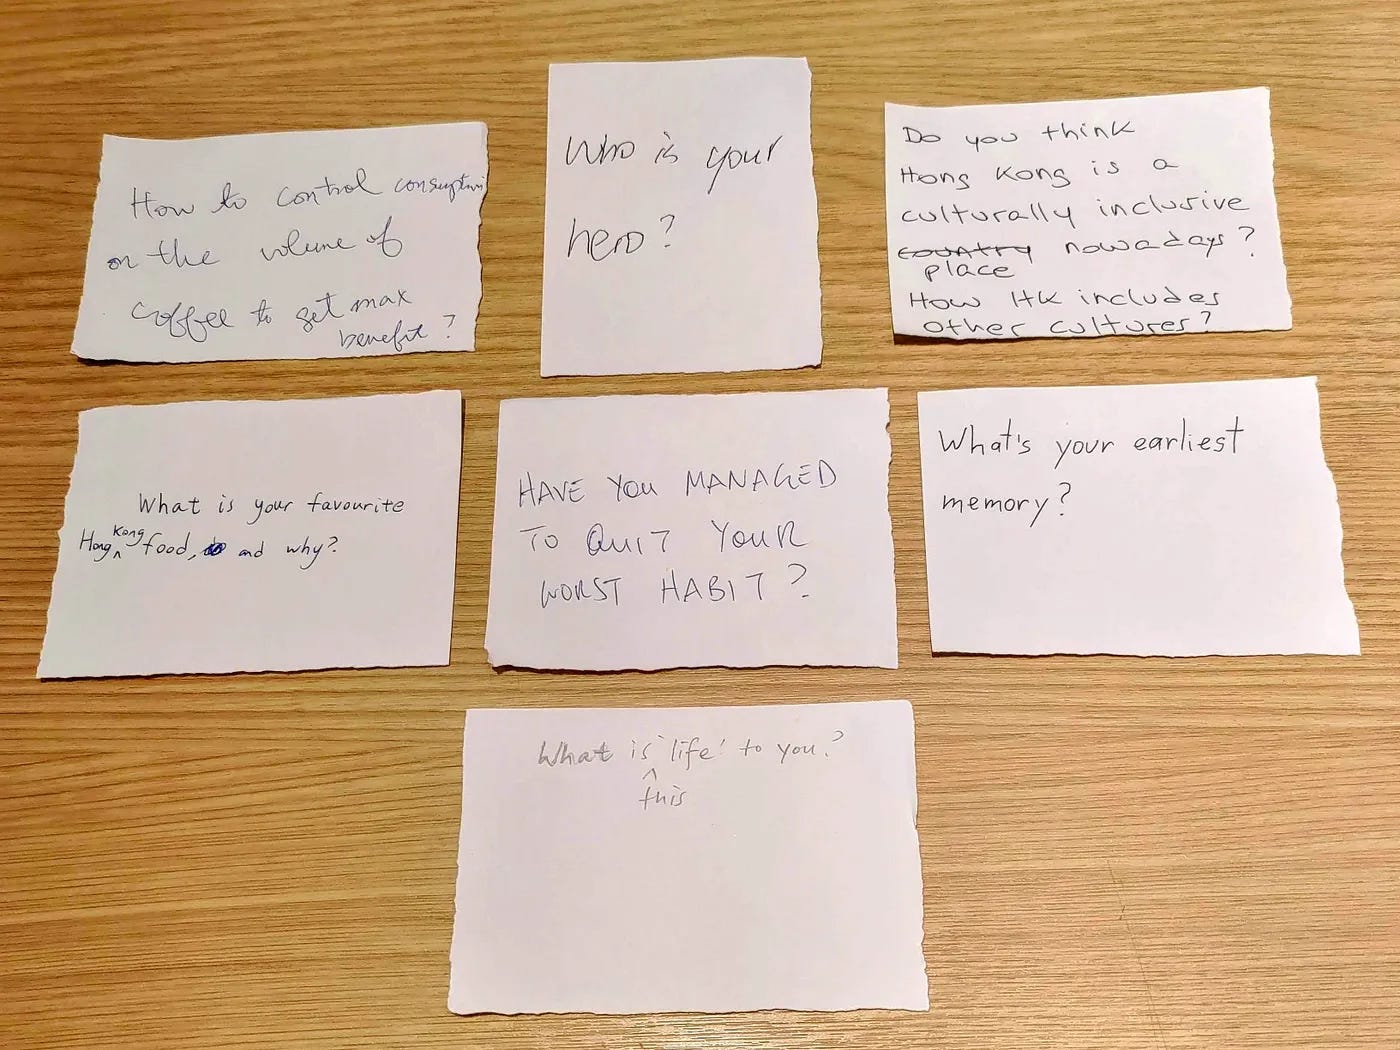 How to control consuption
on the volume of
coffee to get max
benefit?
Who is your
hero?
Do you think
Hong Kong is a
culturally inclusive
country nowadays?
place
How HK includes
other cultures?
What is your favourite
Kong
Hong ^ food, and why?
HAVE YOU MANAGED
TO QUIT YOUR
WORST HABIT?
What's your earliest
memory?
What is 'life' to you?
^
this